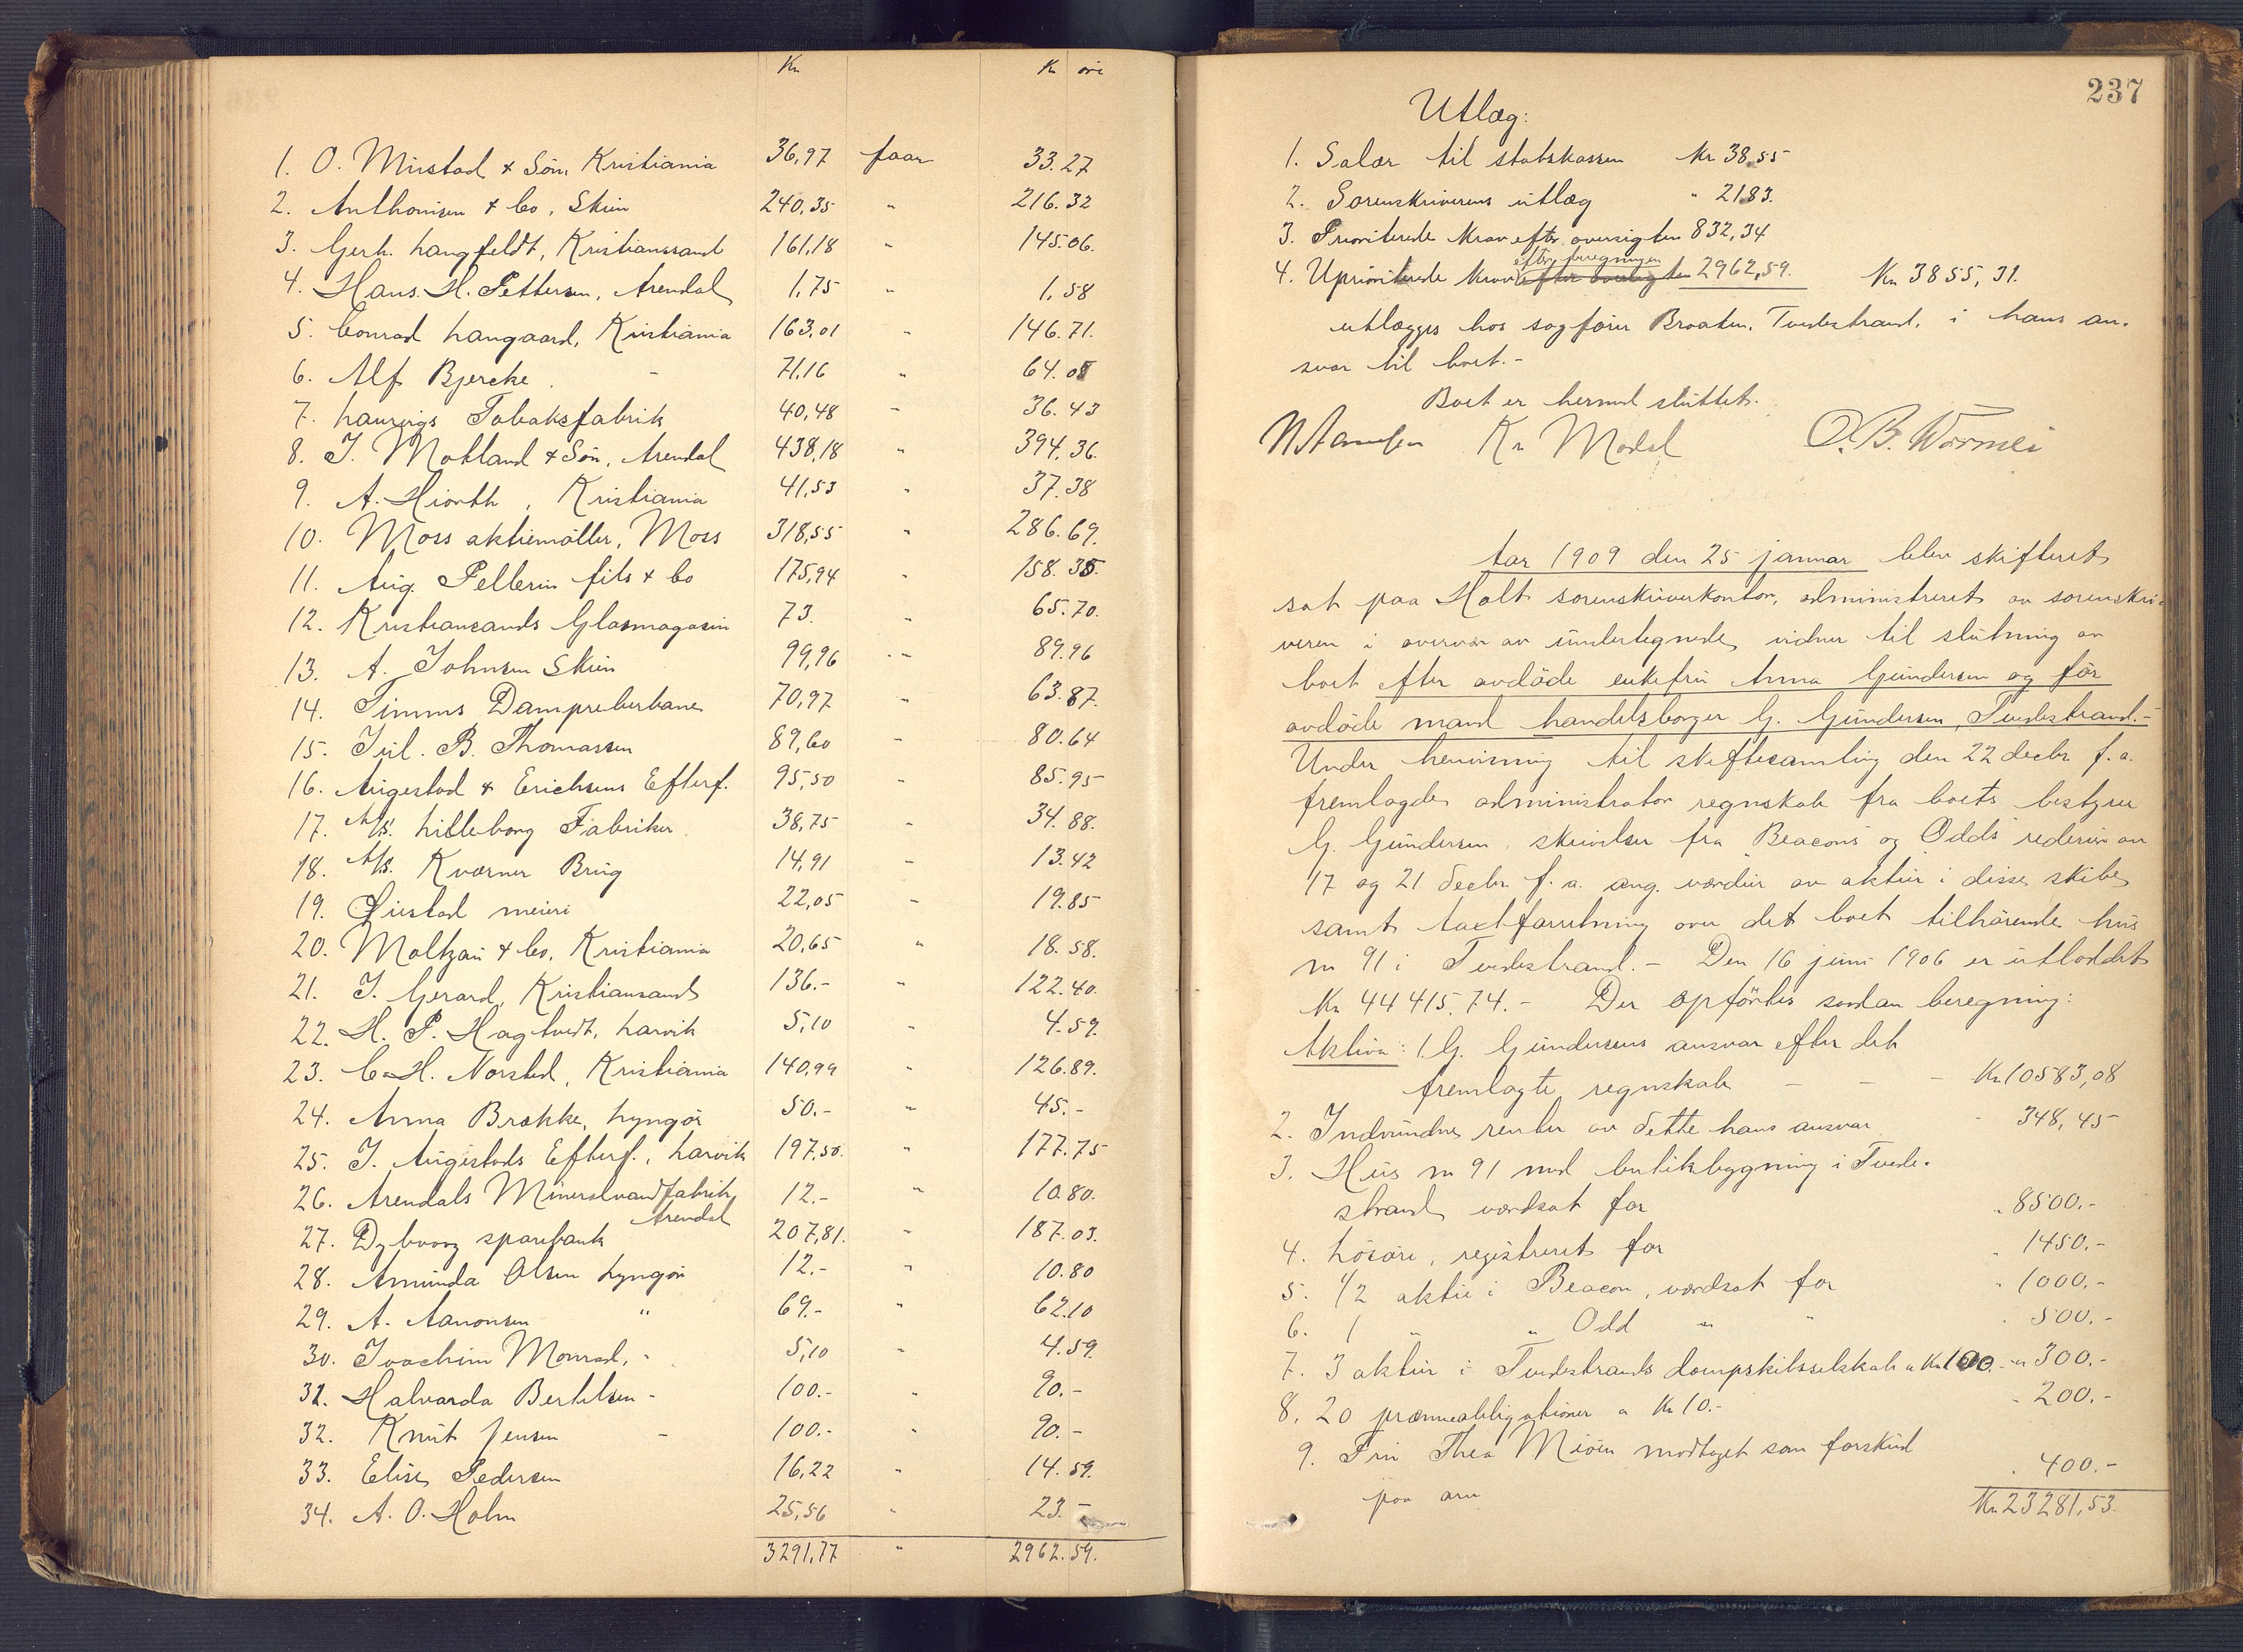 Kr Kr öre
1. O. Mustad & Sön, Kristiania 36,97 faar 33.27
2. Anthonisen & Co, Skien 240,35 " 216.32
3. Gerh. Langfeldt, Kristianssand 161,18 " 145.06.
4. Hans. H. Pettersen, Arendal 1,75 " 1,58
5. Conrad Langaard, Kristiania 163,01 " 146.71.
6. Alf Bjercke. - 71,16 " 64.05
7. Laurvigs Tobaksfabrik 40,48 - 36.43
8. J. Motland & Sön, Arendal 438,18 " 394.36.
9. A. Hiorth, Kristiania 41,53 " 37.38
10. Moss aktiemöller, Moss 318,55 " 286.69.
11. Aug. Pellerin fils & Co 175,94 " 158.35.
12. Kristiansands Glasmagasin 73. " 65.70.
13. A. Johnsen Skien 99,96 " 89.96
14. Timms Dampreberbane 70,97 " 63.87.
15. Jul. B. Thomassen 89,60 - 80.64
16. Augestad & Erichsens Efterf. 95,50 - 85.95
17. A/S. Lilleborg Fabriker 38,75 - 34.88.
18. A/S. Kværner Brug 14,91 - 13.42
19. Qvistad meieri 22,05 - 19.85
20. Moltzau & Co, Kristiania 20,65 " 18.58.
21. J. Gerard, Kristiansand 136.- " 122.40.
22. H. P. Hagtvedt, Larvik 5,10 " 4.59.
23. C. H. Norsted, Kristiania 140,99 " 126.89.
24. Anna Brække, Lyngör 50.- " 45.-
25. J. Augestads Efterf., Larvik 197,50. " 177.75
26. Arendals Mineralvandfabrik, Arendal 12.- " 10.80.
27. Dybvaag sparebank 207,81. " 187.03.
28. Amunda Olsen Lyngör 12.- " 10.80
29. A. Aanonsen " 69.- " 62.10
30. Joachim Monrad, " 5,10 " 4.59.
31. Halvarda Bertelsen - 100.- " 90.-
32. Knut Jensen - 100.- " 90.-
33. Elise Pedersen 16,22 " 14.59.
34. A. O. Holm 25,56 " 23.-
3291,77 " 2962.59.
237
Utlæg:
1. Salær til statskassen Kr 38,55
2. Sorenskriverens utlæg " 21,83.
3. Prioriterede krav efter oversigten 832,34
efter beregningen
4. Uprioriterede krav efter oversigten 2962,59. Kr 3855,31.
utlægges hos sagförer Braaten, Tvedestrand, i hans an-
svar til boet.-
Boet er hermed sluttet.
Kr Modal
Aar 1909 den 25 januar blev skifteret
sat paa Holt sorenskriverkontor, administreret av sorenskri-
veren i overvær av undertegnede vidner til slutning av
boet efter avdöde enkefru Anna Gundersen og för
avdöde mand handelsborger G. Gundersen, Tvedestrand.-
Under henvisning til skiftesamling den 22 decbr f. a.
fremlagde administrator regnskab fra boets bestyrer
G. Gundersen, skrivelser fra "Beacons og Odds" rederier av
17 og 21 decbr f. a. ang. værdien av aktier i disse skibe
samt taxtforretning over det boet tilhörende hus
nr 91 i Tvedestrand.- Den 16 juni 1906 er utloddet
Kr 44415,74.- Der opförtes saadan beregning:
Aktiva: 1. G. Gundersens ansvar efter det
fremlagte regnskab - - - Kr. 10583,08
2. Indvundne renter av dette hans ansvar - 348,45
3. Hus nr 91 med butikbygning i Tvede-
strand, værdsat for " 8500.-
4. Lösöre, registreret for " 1450.-
5. 1/2 aktie i Beacon, værdsat for " 1000.-
6. 1 " " Odd " " " 500.-
7. 3 aktier i Tvedestrands dampskibsselskab a Kr 100.- " 300.-
8. 20 præmieobligationer a Kr 10.- - 200.-
9. Fru Thea Miöen modtaget som forskud
paa arv " 400.-
Kr. 23281,53.